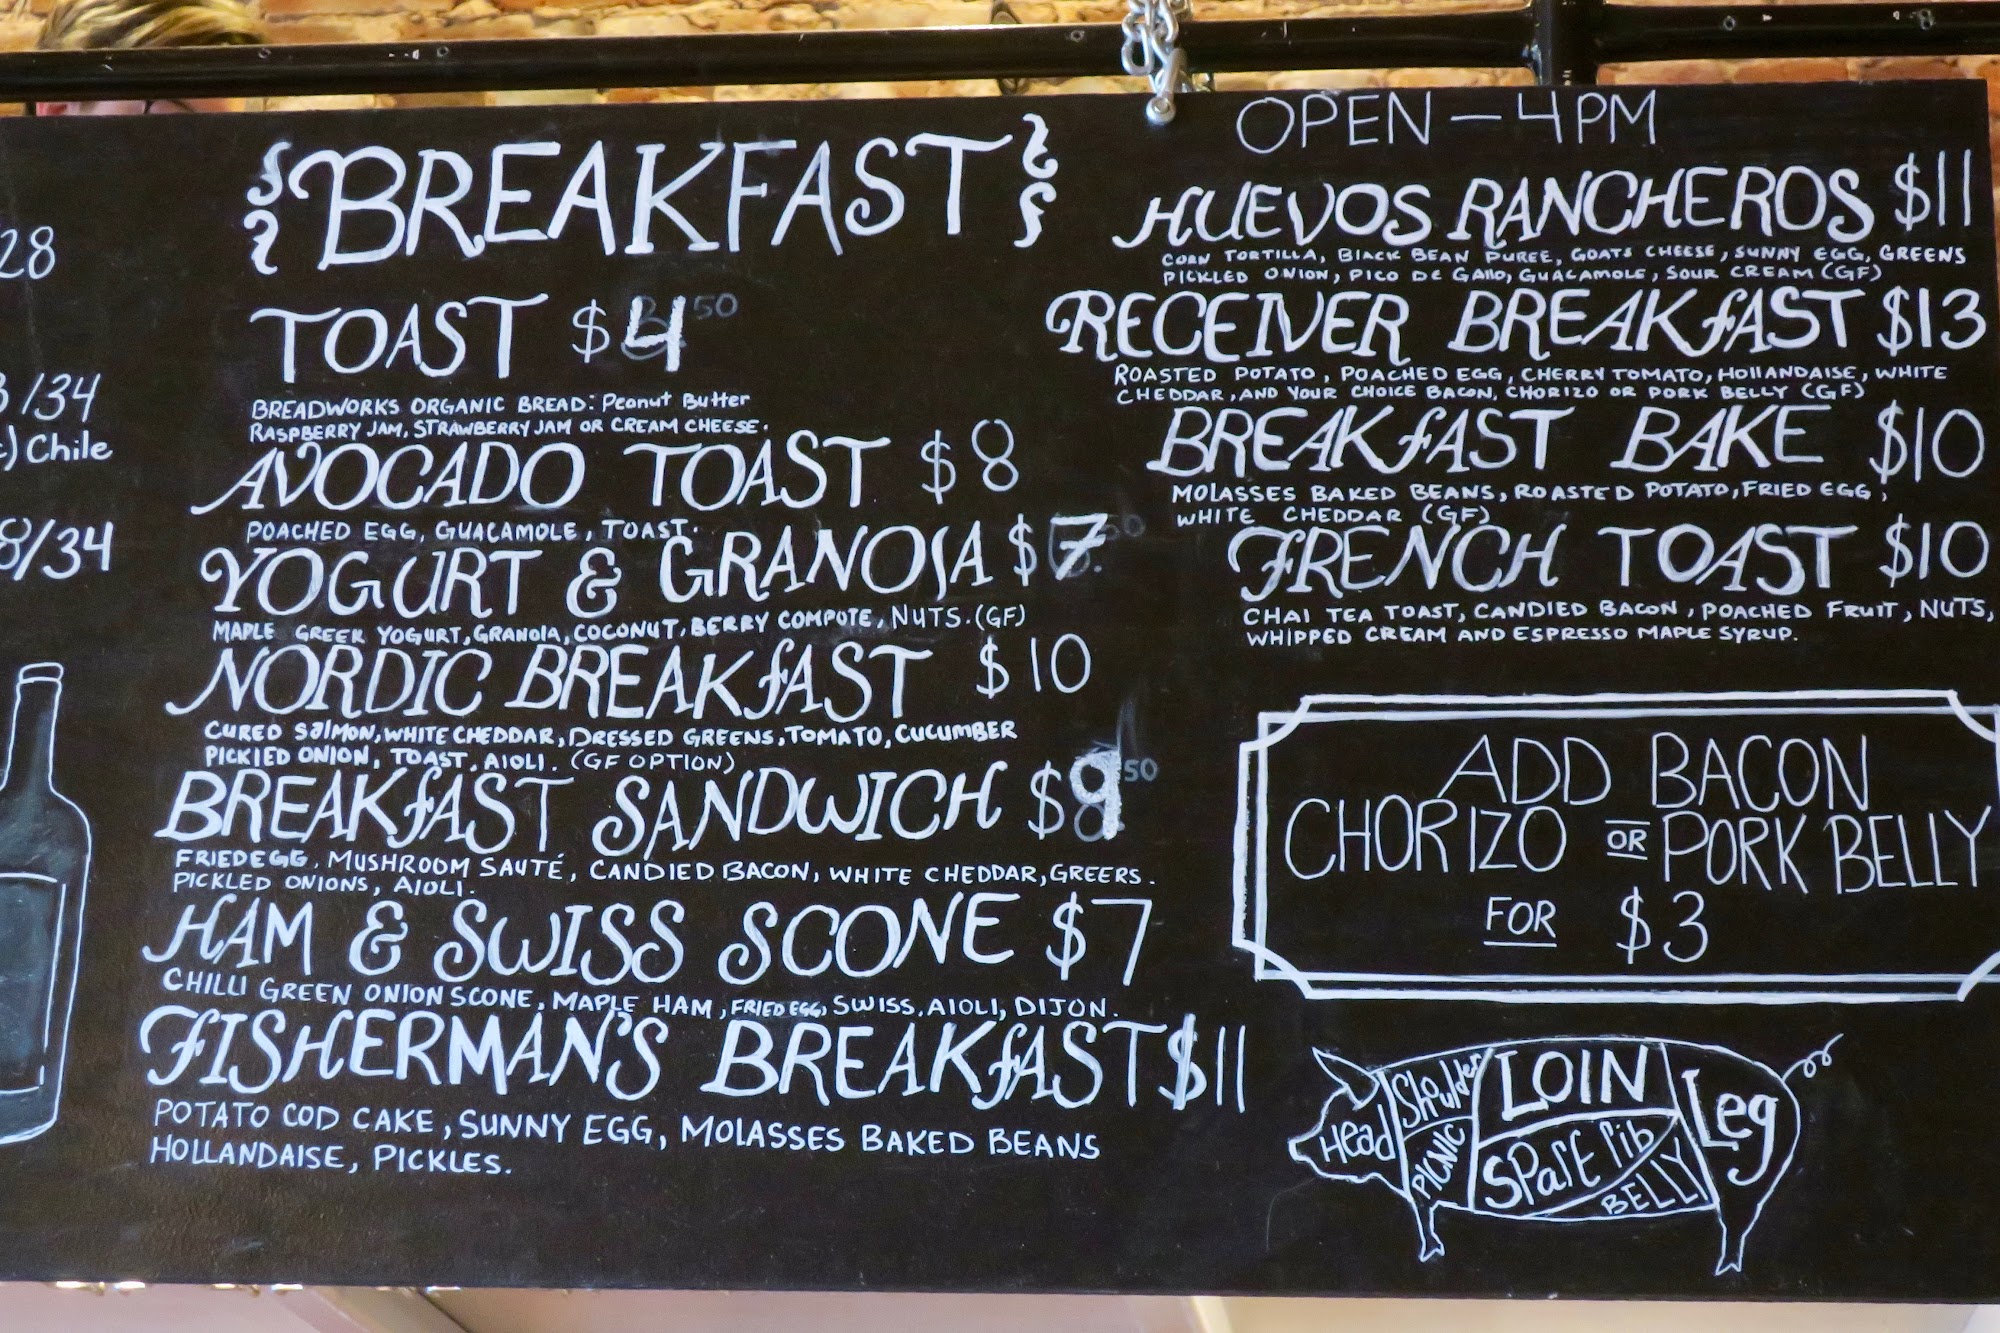 28
/34
Chile
8/34
BREAKFAST
TOAST $4
BREADWORKS ORGANIC BREAD: Peanut Butter
RASPBERRY JAM, STRAWBERRY JAM OR CREAM CHEESE.
AVOCADO TOAST $8
POACHED EGG, GUACAMOLE, TOAST.
YOGURT & GRANOLA $7
MAPLE GREEK YOGURT, GRANOLA, COCONUT, BERRY COMPOTE, NUTS. (GF)
NORDIC BREAKFAST $10
CURED SALMON, WHITE CHEDDAR, DRESSED GREENS, TOMATO, CUCUMBER
PICKLED ONION, TOAST, AIOLI. (GF OPTION)
BREAKFAST SANDWICH $9
FRIED EGG, MUSHROOM SAUTÉ, CANDIED BACON, WHITE CHEDDAR, GREERS.
PICKLED ONIONS, AIOLI.
HAM & SWISS SCONE $7
CHILLI GREEN ONION SCONE, MAPLE HAM, FRIED EGG, SWISS, AIOLI, DIJON.
FISHERMAN'S BREAKFAST $11
POTATO COD CAKE, SUNNY EGG, MOLASSES BAKED BEANS
HOLLANDAISE, PICKLES.
OPEN - 4PM
HUEVOS RANCHEROS $11
CORN TORTILLA, BLACK BEAN PUREE, GOATS CHEESE, SUNNY EGG, GREENS
PICKLED ONION, PICO DE GALLO, GUACAMOLE, SOUR CREAM (GF)
RECEIVER BREAKFAST $13
ROASTED POTATO, POACHED EGG, CHERRY TOMATO, HOLLANDAISE, WHITE
CHEDDAR, AND YOUR CHOICE BACON, CHORIZO OR PORK BELLY (GF)
BREAKFAST BAKE $10
MOLASSES BAKED BEANS, ROASTED POTATO, FRIED EGG,
WHITE CHEDDAR (GF)
FRENCH TOAST $10
CHAI TEA TOAST, CANDIED BACON, POACHED FRUIT, NUTS,
WHIPPED CREAM AND ESPRESSO MAPLE SYRUP.
ADD BACON
CHORIZO OR PORK BELLY
FOR $3
Head
Shoulder
PICNIC
LOIN
Spare rib
BELLY
Leg